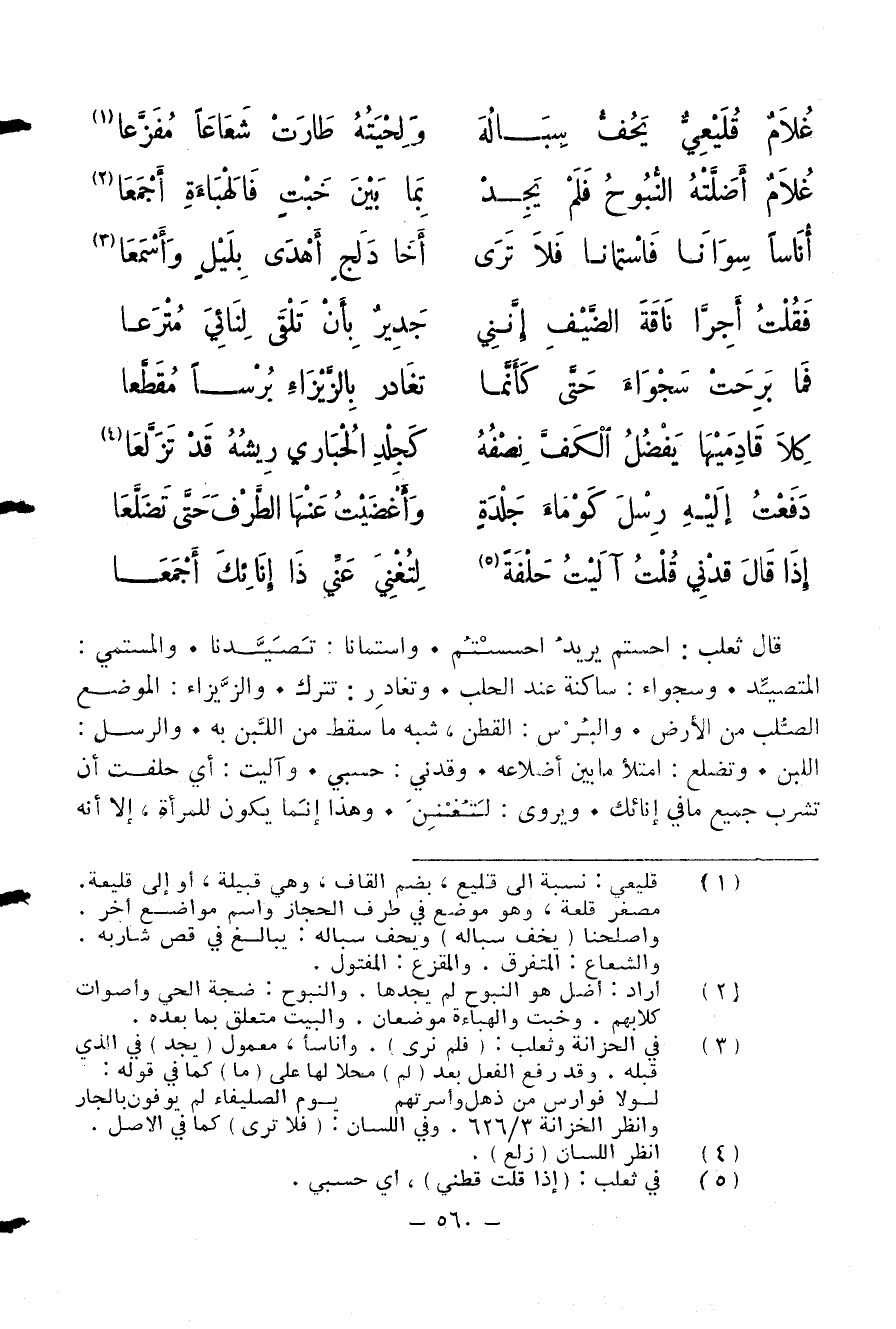 غُلاَمٌ قُلَيْعِيٌّ يَحُفُّ سِبَـــالُهُ وَلِحْيَتُهُ طَارَتْ شَعَاعَاً مُفَزَّعا(١)
غُلاَمٌ أَضَلَّتْهُ النُّبُوحُ فَلَمْ يَجِـــدْ بَمَا بَيْنَ خَبْتٍ فَالهَْبَاءَةِ أَجْمَعَا(٢)
أُنَاساً سِوَانَــا فَاسْتمانــا فَلاَ تَرَى أَخَا دَلَجٍ أَهْدَى بِلَيْلٍ وَأَسْمَعَا(٣)
فَقُلْتُ أَجِرَّا نَاقَةَ الضَّيْفِ إِنَّــنِي جَدِيرٌ بِأَنْ تَلْقَى لِنَائِيَ مُتْرَعــا
فَمَا بَرِحَتْ سَجْوَاءَ حَتَّى كَأَنَّمَــا تغَادر بِالزَّيْزَاءِ بُرْســـاً مُقَطَّعا
كِلاَ قَادِمَيْهَا يَفْضُلُ ٱلْكَفَّ نِصْفُهُ كَجِلْدِ الْحُبَارِي رِيشُهُ قَدْ تَزَلَّعَا(٤)
دَفَعْتُ إِلَيْـهِ رِسْلَ كَوْمَاءَ جَلْدَةٍ وَأَغْضَيْتُ عَنْهَا الطَّرْفَ حَتَّى تَضَلَّعَا
إِذَا قَالَ قدْنِي قُلْتُ آلَيْتُ حَلْفَةً(٥) لِتُغْنِيَ عَنِّي ذَا إِنَائِكَ أَجْمَعَـــا
قال ثعلب : احستم يريدُ احسسْتُم ٠ واستمانا : تَصَيَّــدنا ٠ والمستمي :
المتصيِّد ٠ وسجواء : ساكنة عند الحلب ٠ وتغادر : تترك ٠ والزَّيزاء : الموضــع
الصُّلب من الأرض ٠ والبُرْس : القطن ، شبه ما سقط من اللَّبن به ٠ والرســل :
اللبن ٠ وتضلع : امتلأ مابين أضلاعه ٠ وقدني : حسبي ٠ وآليت : أي حلفــت أن
تشرب جميع مافي إنائك ٠ ويروى : لَتُغْنِنَ ٠ وهذا إنّما يكون للمرأة ، إلا أنه
(١) قليعي : نسبة الى قليع ، بضم القاف ، وهي قبيلة ، أو إلى قليعة.
مصغر قلعة ، وهو موضع في طرف الحجاز واسم مواضــع أخر .
واصلحنا ( يخف سباله ) ويحف سباله : يبالــغ في قص شاربه .
والشعاع : المتفرق . والمقزع : المفتول .
(٢) اراد : أضل هو النبوح لم يجدها . والنبوح : ضجة الحي وأصوات
كلابهم . وخبت والهباءة موضعان . والبيت متعلق بما بعده .
(٣) في الخزانة وثعلب : ( فلم نرى ) . وأناسأ ، معمول ( يجد ) في الذي
قبله . وقد رفع الفعل بعد ( لم ) محلا لها على ( ما ) كما في قوله :
لــولا فوارس من ذهل وأسرتهم يــوم الصليفاء لم يوفون بالجار
وانظر الخزانة ٦٢٦/٣ . وفي اللسان : ( فلا ترى ) كما في الاصل .
(٤) انظر اللسان ( زلع ) .
(٥) في ثعلب : ( إذا قلت قطني ) ، أي حسبي .
— ٥٦٠ —